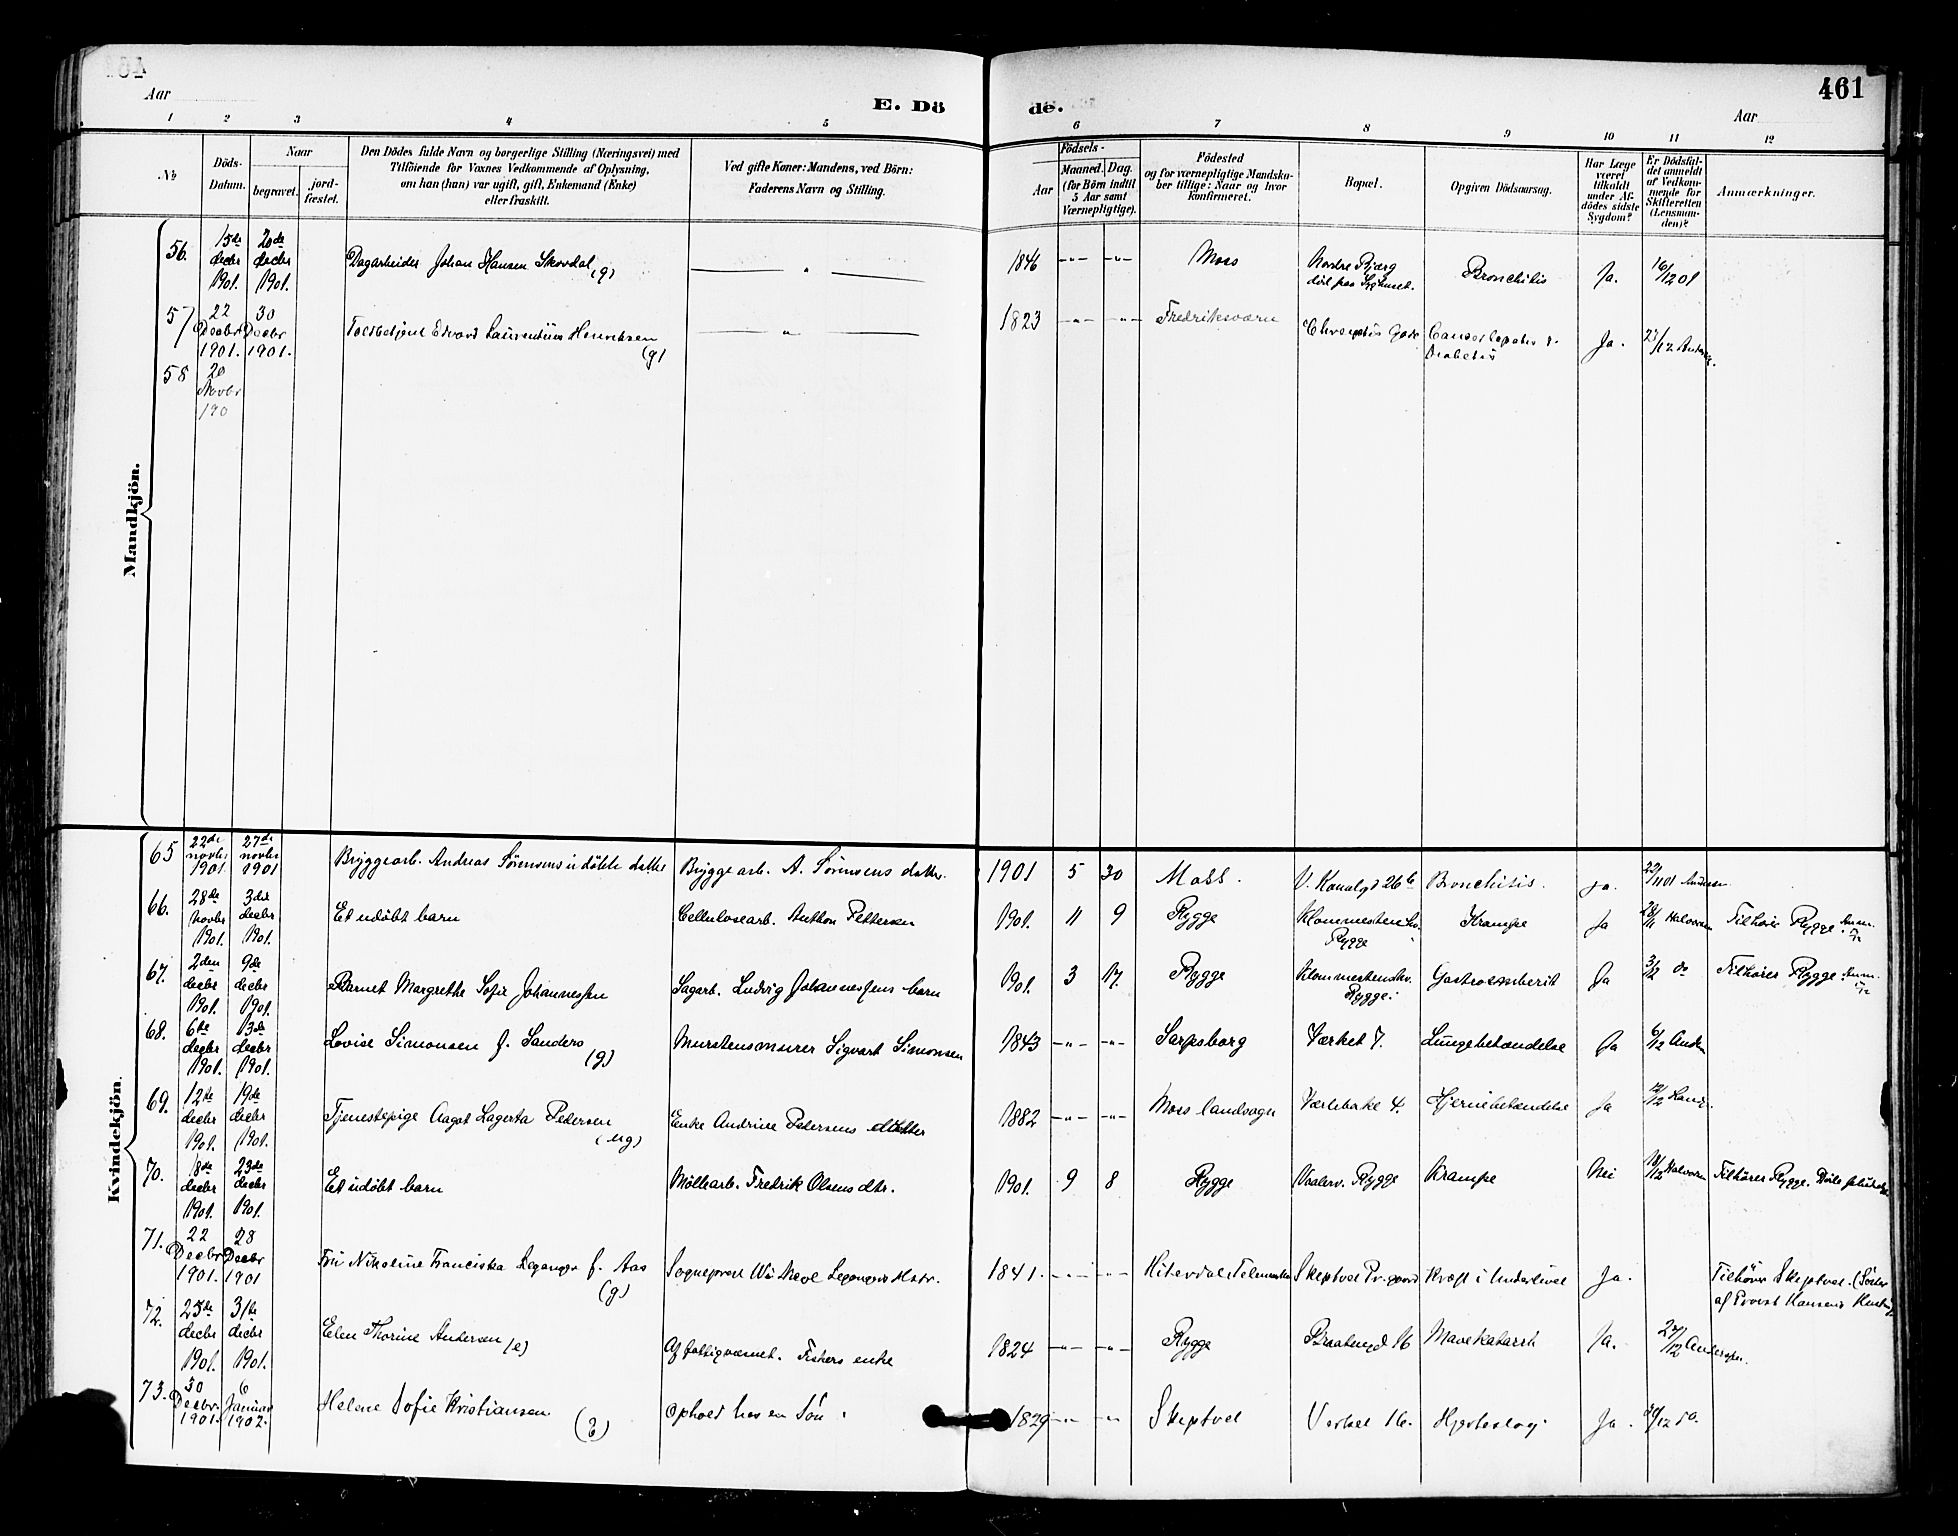 461
Aar
E. Dö
de.
Aar
1 2 3 4 5 6 7 8 9 10 11 12
No
Döds-
Datum.
Naar
begravet.
jord-
fæstet.
Den Dödes fulde Navn og borgerlige Stilling (Næringsvei) med
Tilföiende for Voxnes Vedkommende af Oplysning,
om han (hun) var ugift, gift, Enkemand (Enke)
eller fraskilt.
Ved gifte Koner: Mandens, ved Börn:
Faderens Navn og Stilling.
Födsels-
Aar
Maaned. Dag.
(for Börn indtil
5 Aar samt
Værnepligtige).
Födested
og for værnepligtige Mandska-
ber tillige: Naar og hvor
konfirmeret.
Bopæl.
Opgiven Dödsaarsag.
Har Læge
været
tilkaldt
under Af-
dödes sidste
Sygdom?
Er Dödsfal-
det anmeldt
af Vedkom-
mende for
Skifteretten
(Lensman-
den)?
Anmærkninger.
Mandkjön.
56. 15de decbr 1901. 20de decbr 1901. Dagarbeider Johan Hansen Skovdal (g) — " — 1846 -"- -"- Moss Nordre Bjerg Bronchitis Ja. 16/12 01
död paa Sygehuset.
57 22 Decbr 1901. 30 Decbr 1901. Toldbetjent Edvard Laurentius Henriksen (g) — " — 1823 -"- -"- Fredriksværn Cancer hepatis & Diabetis Ja. 23/12
58 20 Novbr 190
Kvindekjön.
65 22de novbr 1901 27de novbr 1901 Bryggearb. Andreas Sørensens udöbte datter Bryggearb. A. Sørensens datter. 1901 5 30 Moss. V. Kanalgd 26b Bronchitis. Ja. 22/11 01 Andersen
66. 28de Novbr 1901. 3die decbr 1901. Et udøbt barn Cellulosearb. Anthon Pettersen 1901. 11 9 Rygge Rygge Krampe Ja 28/11 Halvorsen Tilhører Rygge.
67. 2den decbr 1901. 9de decbr 1901. Barnet Margrethe Sofie Johannessen Sagarb. Ludvig Johannessens barn 1901. 3 17. Rygge Rygge. Gastroenterit Ja 3/12 do Tilhører Rygge
68. 6te decbr 1901. 13de decbr 1901. Lovise Simonsen f. Sanders (g) Murstensmurer Sigvart Simonsen 1843 -"- -"- Sarpsborg Værket 7. Lungebetændelse Ja 6/12 Anders
69. 12te decbr 1901. 19de decbr 1901. Tjenestepige Aagot Lagerta Pedersen (ug) Enke Andrine Pedersens datter 1882 -"- -"- Moss landsogn 4. Hjernebetændelse Ja 12/12
70. 18de decbr 1901. 23de decbr 1901. Et udøbt barn Møllearb. Fredrik Olsens dtr. 1901. 9 8 Rygge Vaalerv. Rygge Krampe Nei 18/12 Halvorsen Tilhører Rygge.
71. 22 Decbr 1901. 28 Decbr 1901 Fru Nikoline Franciska Leganger f. Aas (g) Sogneprest Leganger Hstr. 1841. -"- -"- Hiterdal Telemarken Skeptvet Pr.gaard Kræft i Underlivet Ja. Tilhører Skeptvet. (Søster
af Provst Hansens Hustru)
72. 25de decbr 1901. 31te decbr 1901. Elen Thorine Andersen (e) Af fattigvæsnet. Fiskers enke 1824 -"- -"- Rygge 16 Mavekatarrh Ja. 27/12 Andersen.
73. 30 Decbr. 1901. 6 Januar 1902. Helene Sofie Kristiansen (e) Ophold hos en Søn. 1829 -"- -"- Skeptvet Verket 16. Ja. 31/12 do.